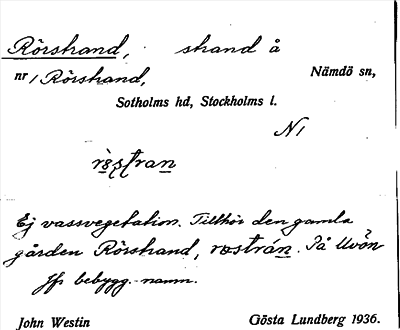 Rörstrand, strand å
nr 1 Rörstrand, Nämdö sn,
Sotholms hd, Stockholms l.
N1
Ej vassvegetation. Tillhör den gamla
gården Rörstrand, På Uvön
Jfr bebygg. namn.
John Westin Gösta Lundberg 1936.